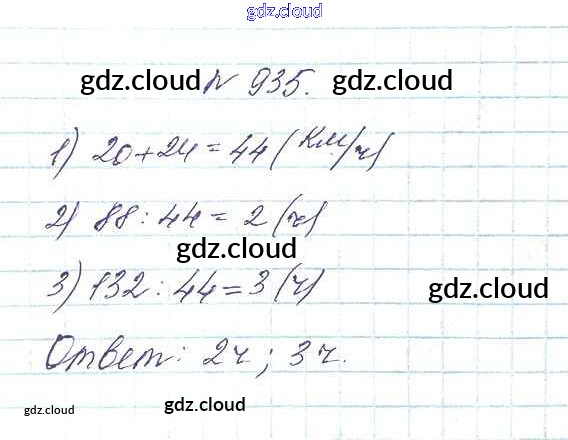 gdz.cloud
gdz.cloud № 935. gdz.cloud
1) 20+24=44 (км/ч)
2) 88:44=2 (ч)
gdz.cloud
3) 132:44=3 (ч)
gdz.cloud
Ответ: 2ч; 3ч.
gdz.cloud
gdz.cloud